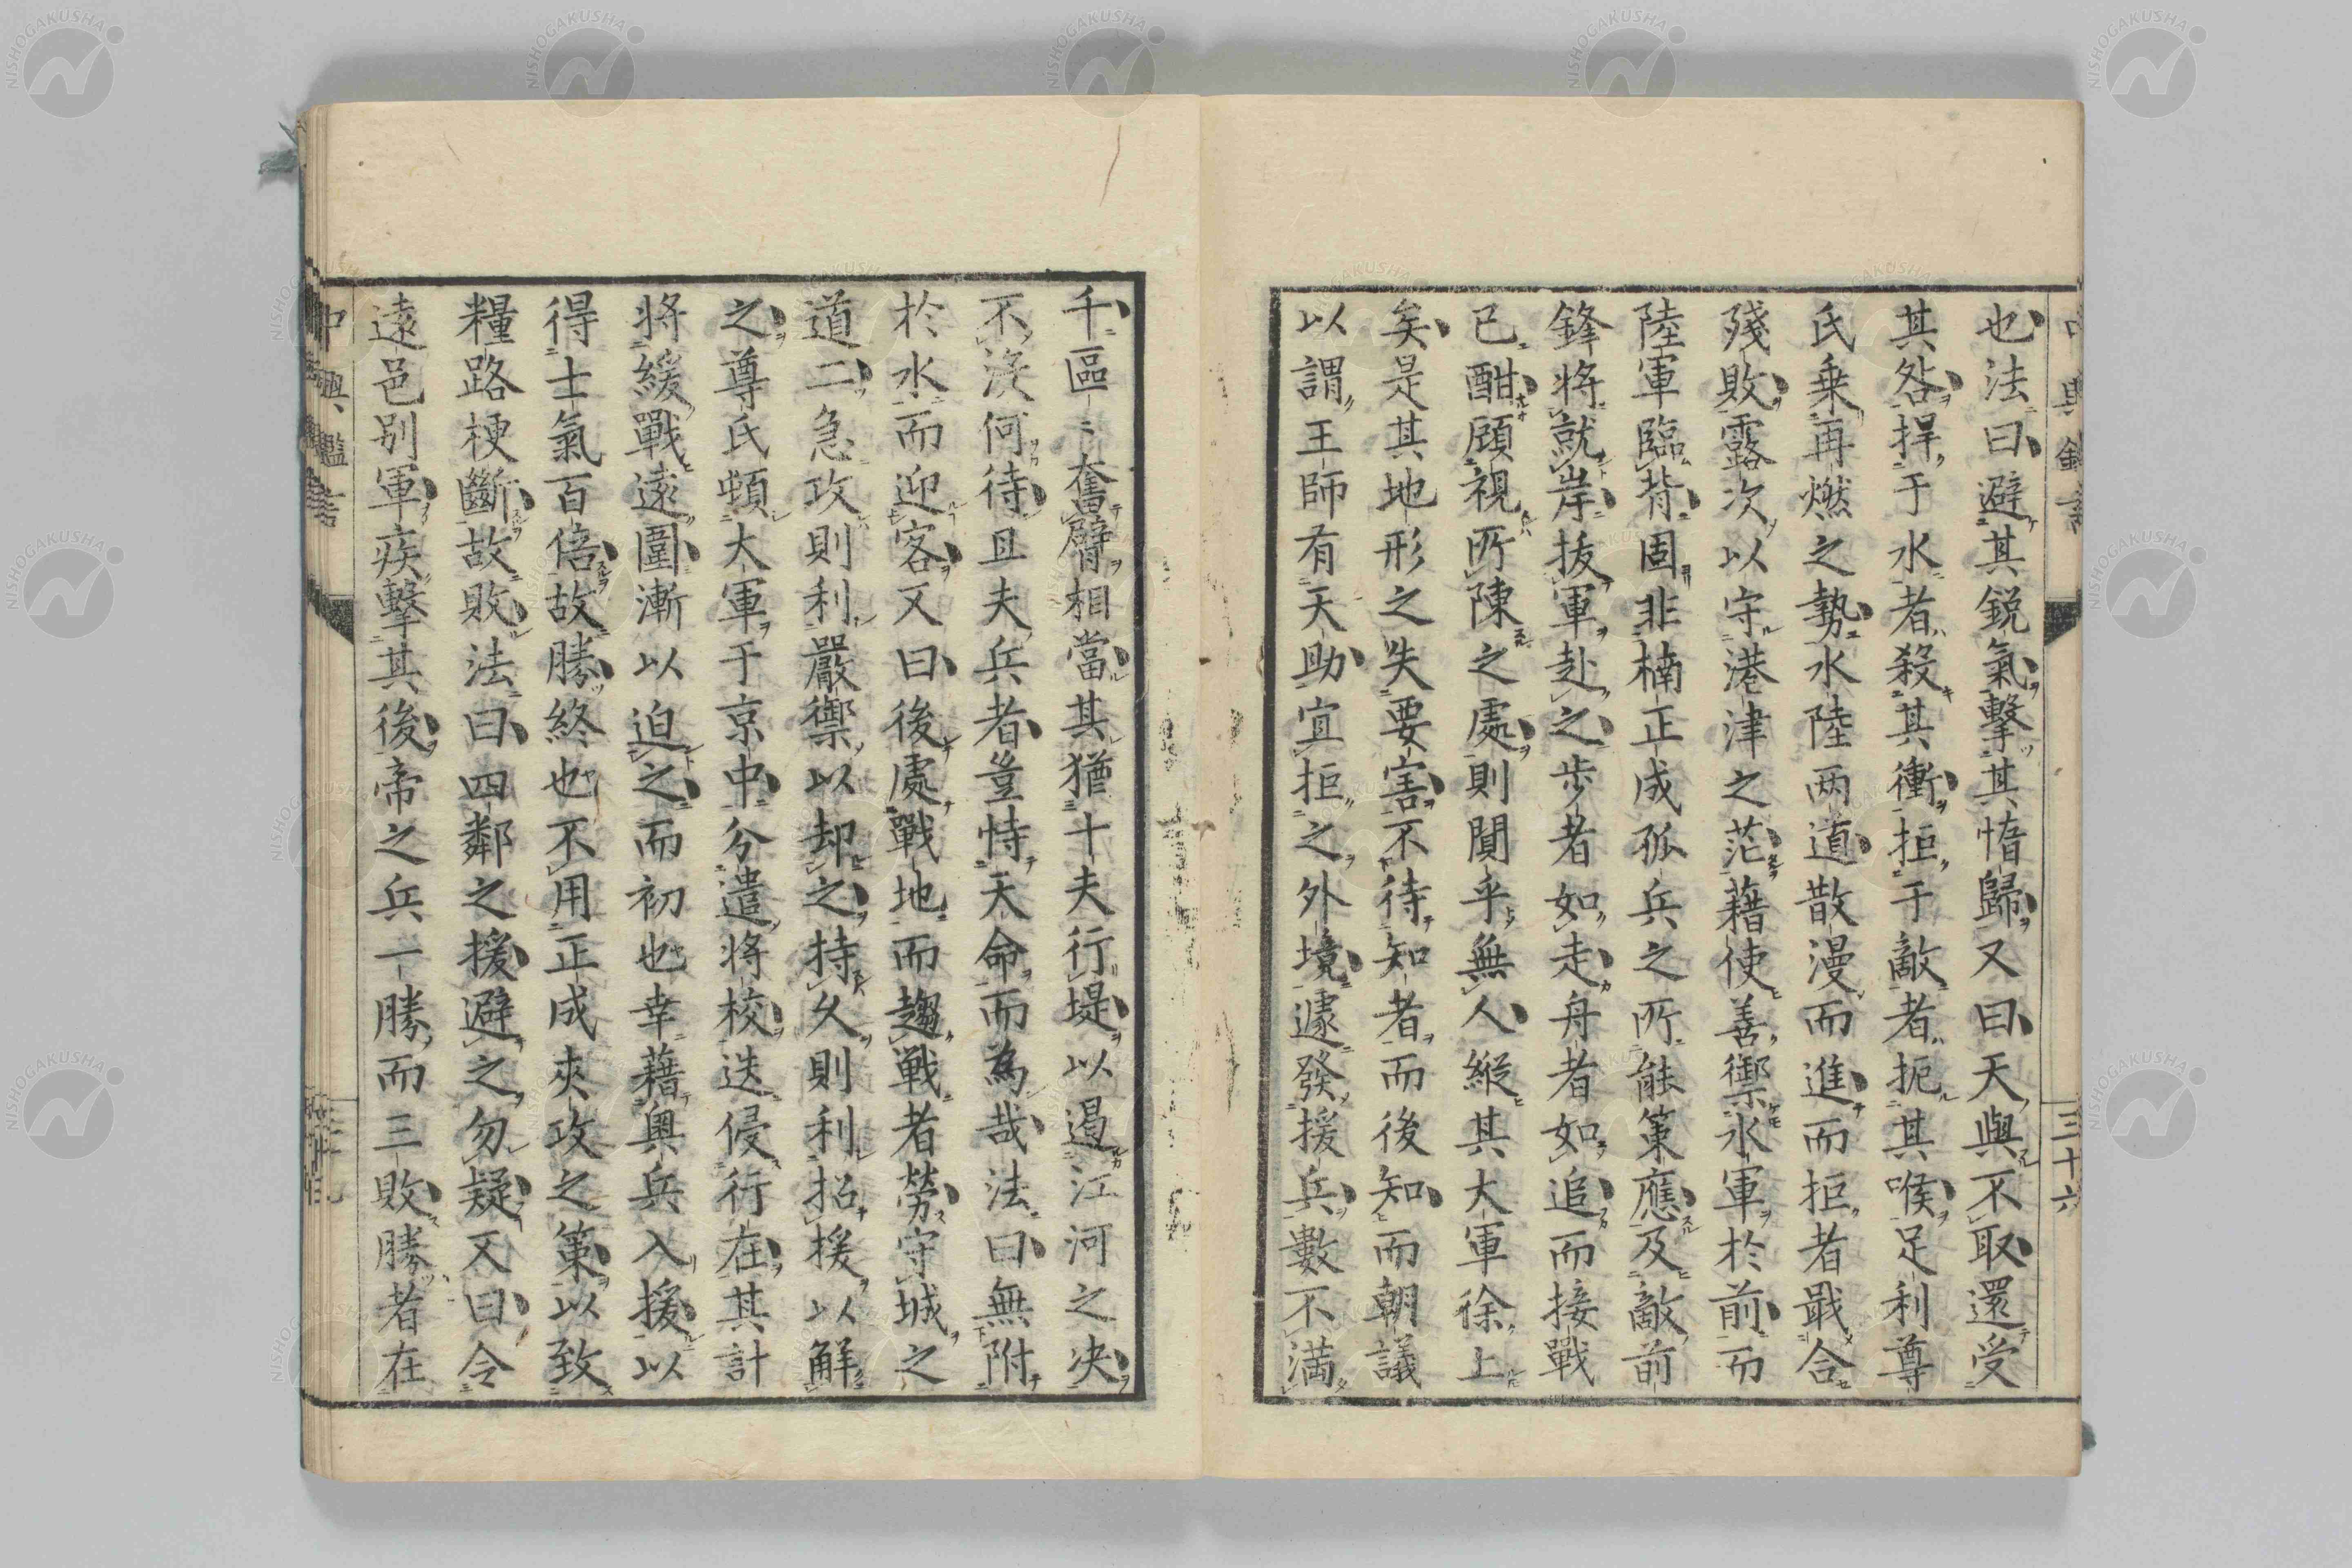 也法曰避其鋭氣擊其惰歸又曰天與不取還受
其咎捍于水者殺其衝拒于敵者扼其喉足利尊
氏乗再燃之勢水陸兩道散漫而進而拒者戢合
殘敗露次以守港津之茫藉使善禦水軍於前而
陸軍臨背固非楠正成孤兵之所能策應及敵前
鋒將就岸拔軍赴之歩者如走舟者如追而接戰
已酣顧視所陳之處則闃乎無人縱其大軍徐上
矣是其地形之失要害不待知者而後知而朝議
以謂王師有天助宜拒之外境遽發援兵數不満
三十六
千區〻奮臂相當其猶十夫行堤以遏江河之决
不湌何待且夫兵者豈恃天命而為哉法曰無附
於水而迎客又曰後處戰地而趨戦者勞守城之
道二急攻則利嚴禦以却之持久則利招援以解
之尊氏頓大軍于京中分遣將校迭侵行在其計
將緩戰遠圍漸以迫之而初也幸藉奥兵入援以
得士氣百倍故勝終也不用正成夾攻之策以致
糧路梗斷故敗法曰四鄰之援避之勿疑又曰令
遠邑别軍疾擊其後帝之兵一勝而三敗勝者在
中興鑑言
NISHOGAKUSHA